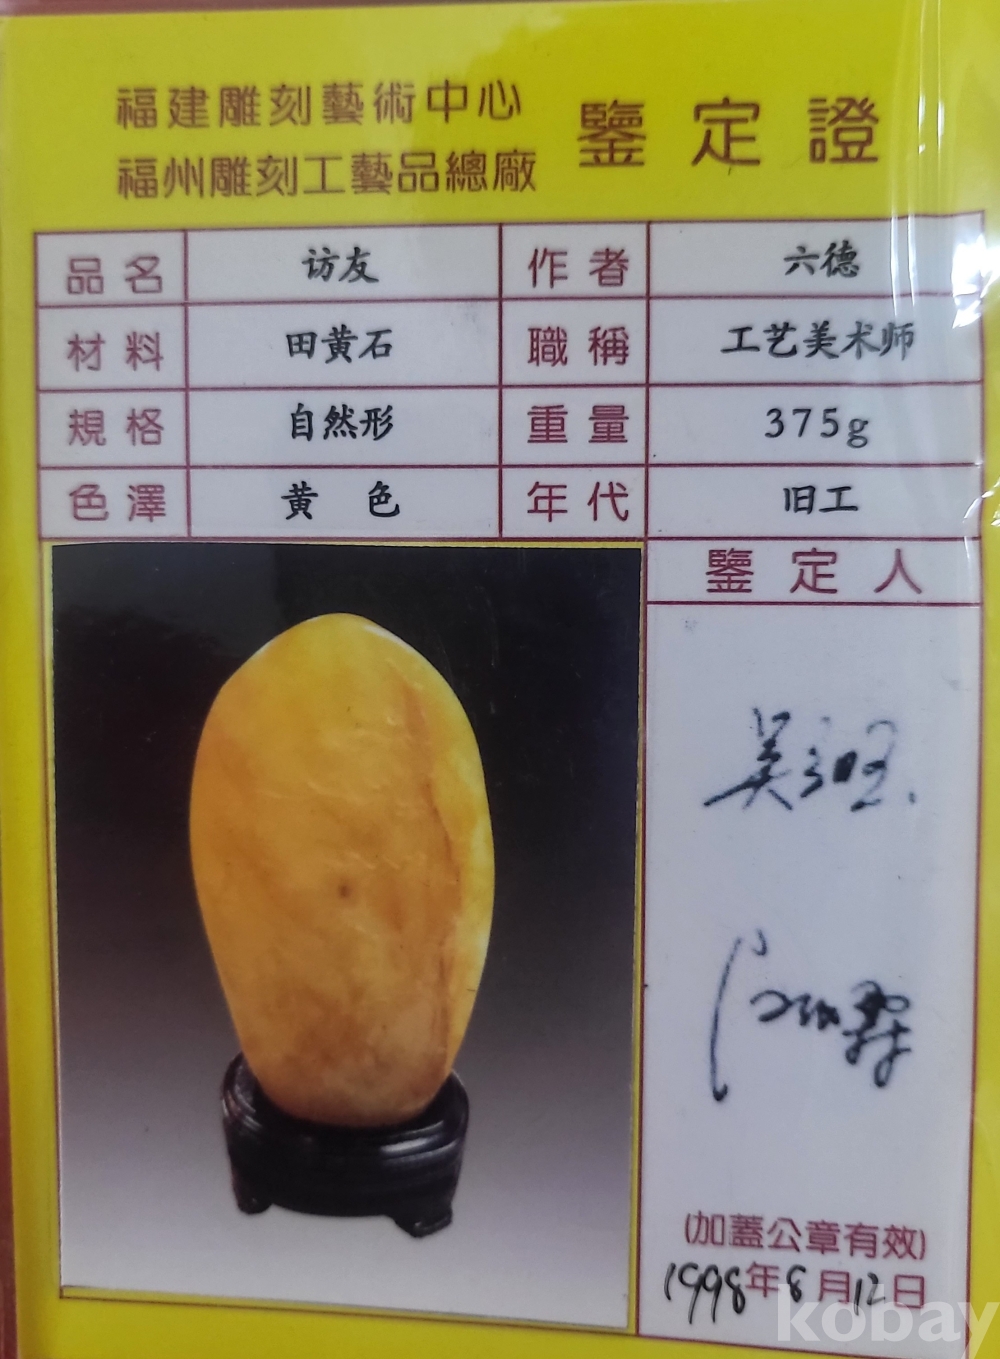 福建雕刻藝術中心
福州雕刻工藝品總廠
鑒定證
品名 访友 作者 六德
材料 田黄石 職稱 工艺美术师
規格 自然形 重量 375g
色澤 黄 色 年代 旧工
鑒定人
(加蓋公章有效)
1998年8月12日
kobay